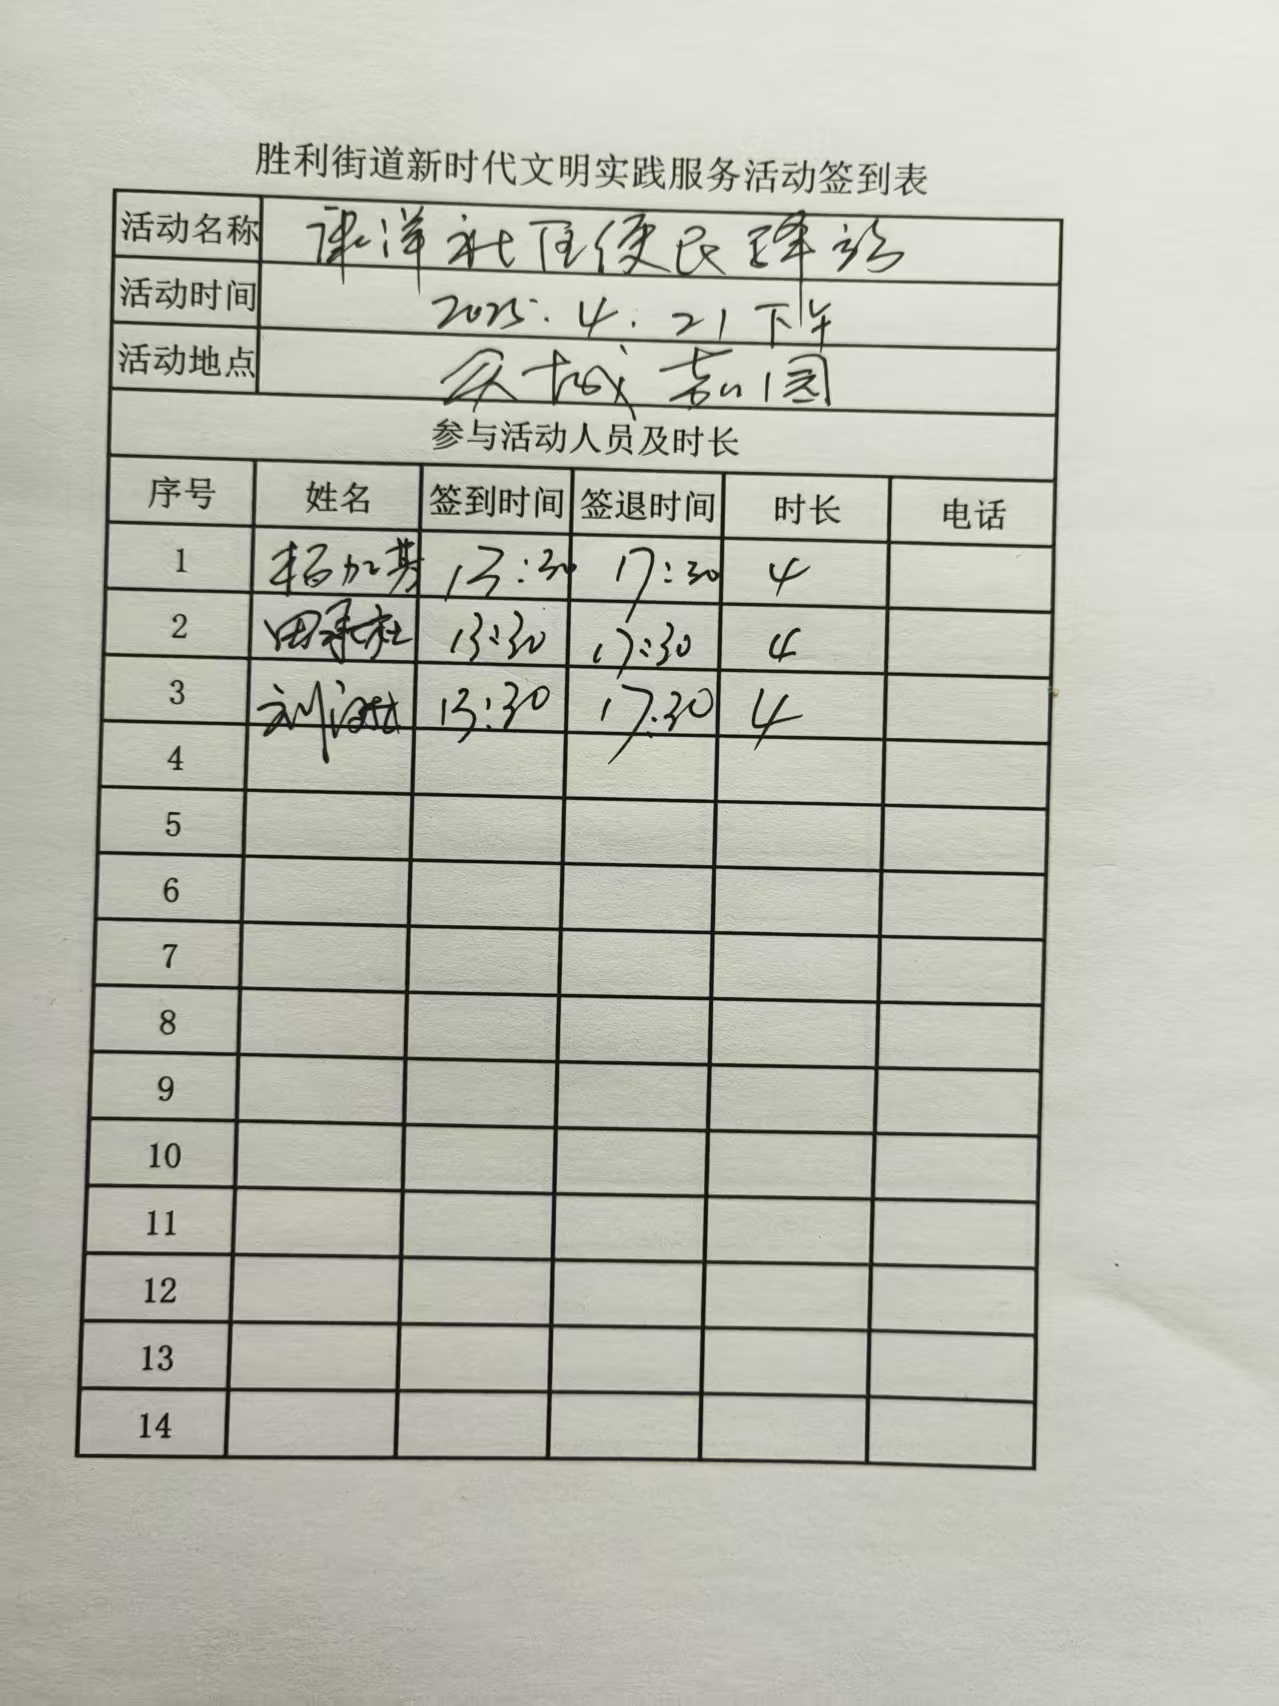 胜利街道新时代文明实践服务活动签到表
活动名称 洋社区便民驿站
活动时间 2025.4.21下午
活动地点 城嘉园
参与活动人员及时长
序号 姓名 签到时间 签退时间 时长 电话
1 13:30 17:30 4
2 田承社 13:30 17:30 4
3 刘 13:30 17:30 4
4
5
6
7
8
9
10
11
12
13
14